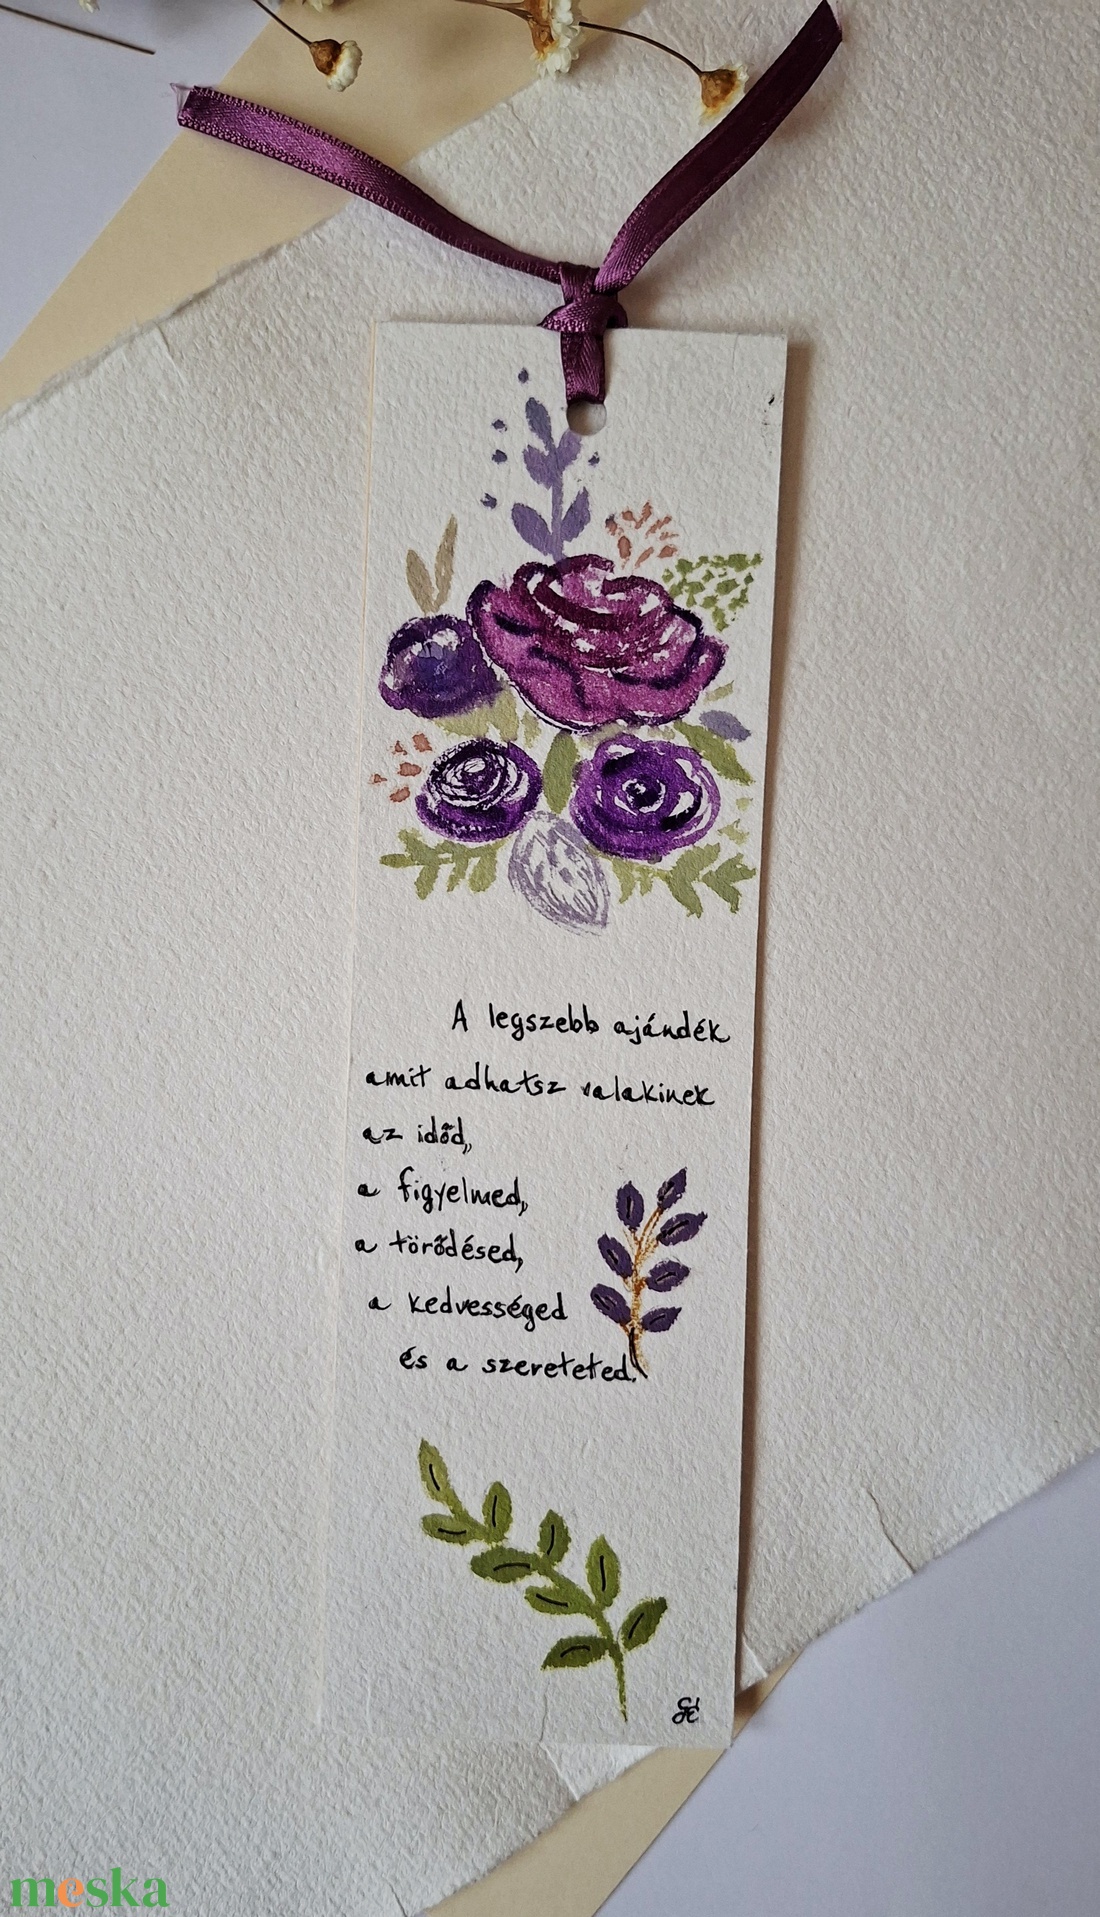 A legszebb ajándék
amit adhatsz valakinek
az időd,
a figyelmed,
a törődésed,
a kedvességed
és a szereteted.
meska